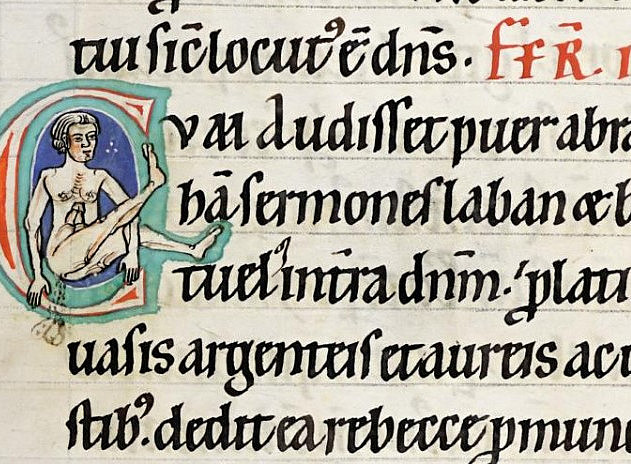 tui ſic̄ locutꝰ ē dn̄s.
Qvm audiſſet puer abra
hā ſermoneſ laban & b
tuelꝰ in t̄ra dn̄m. ꝓlati
uaſis argenteiſ et aureis ac u
ſtibꝰ. dedit ea rebecce ꝓ mun